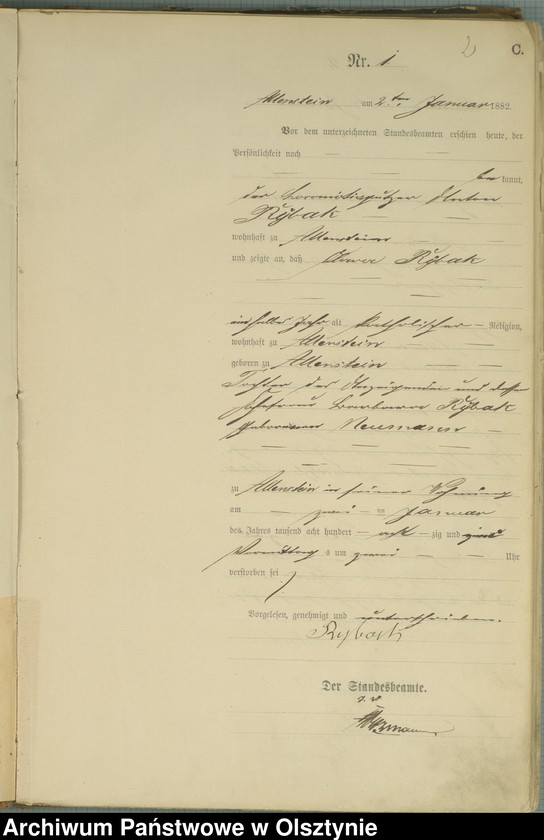 2
C.
Nr. 1
Allenstein am 2ten Januar 1882.
Vor dem unterzeichneten Standesbeamten erschien heute, der
Persönlichkeit nach
bekannt,
der Locomotivputzer Anton
Rybak
wohnhaft zu Allenstein
und zeigte an, daß Clara Rybak
ein halbes Jahr alt katholischer Religion,
wohnhaft zu Allenstein
geboren zu Allenstein
Tochter des Anzeigenden und dessen
Ehefrau Barbara Rybak
geborenen Neumann
zu Allenstein in seiner Wohnung
am zwei ten Januar
des Jahres tausend acht hundert acht zig und zwei
Vormittags um zwei Uhr
verstorben sei
Vorgelesen, genehmigt und unterschrieben.
Rybak
Der Standesbeamte.
Archiwum Państwowe w Olsztynie